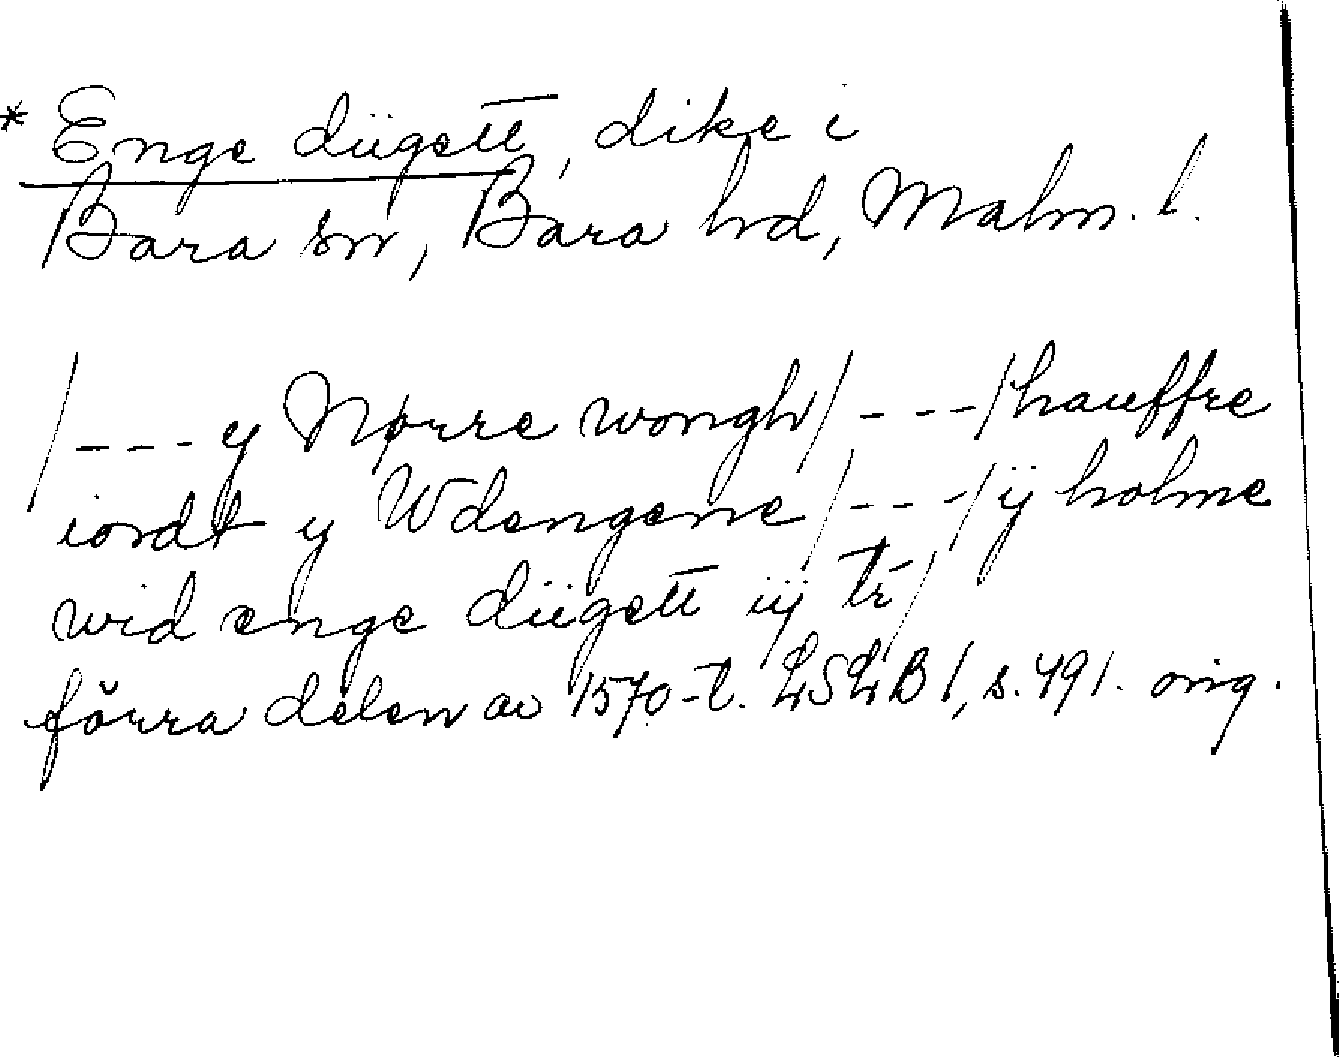 * Enge diigett, dike i
Bara sn, Bara hd, Malm. l.
/--- y Nørre wongh/---/hauffre
iordt y Wdengene/---/ÿ holme
wid enge diigett iij tr/
förra delen av 1570-t. LSLB 1, s. 491. orig.